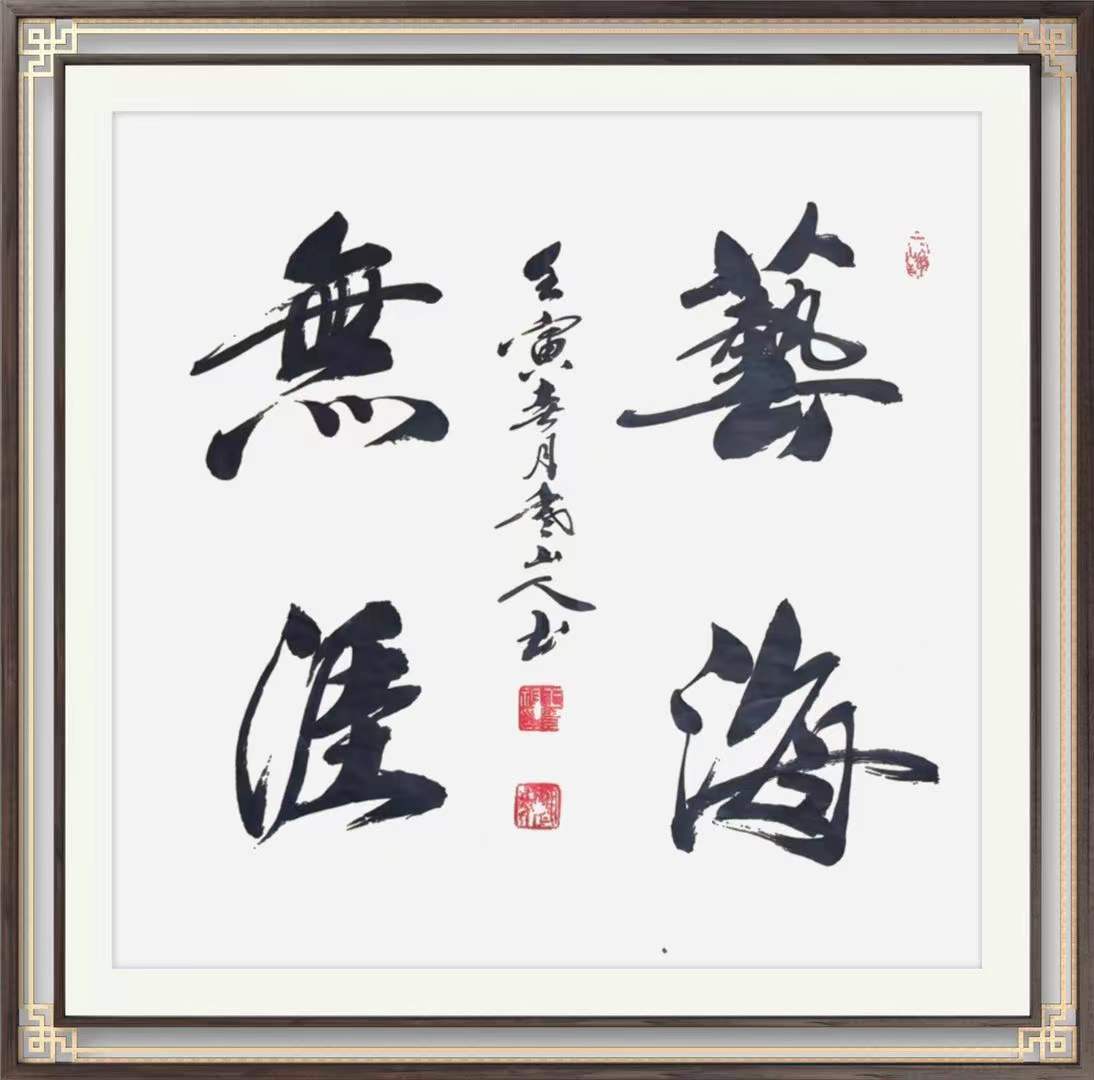 藝海
無涯
壬寅春月雲山人书